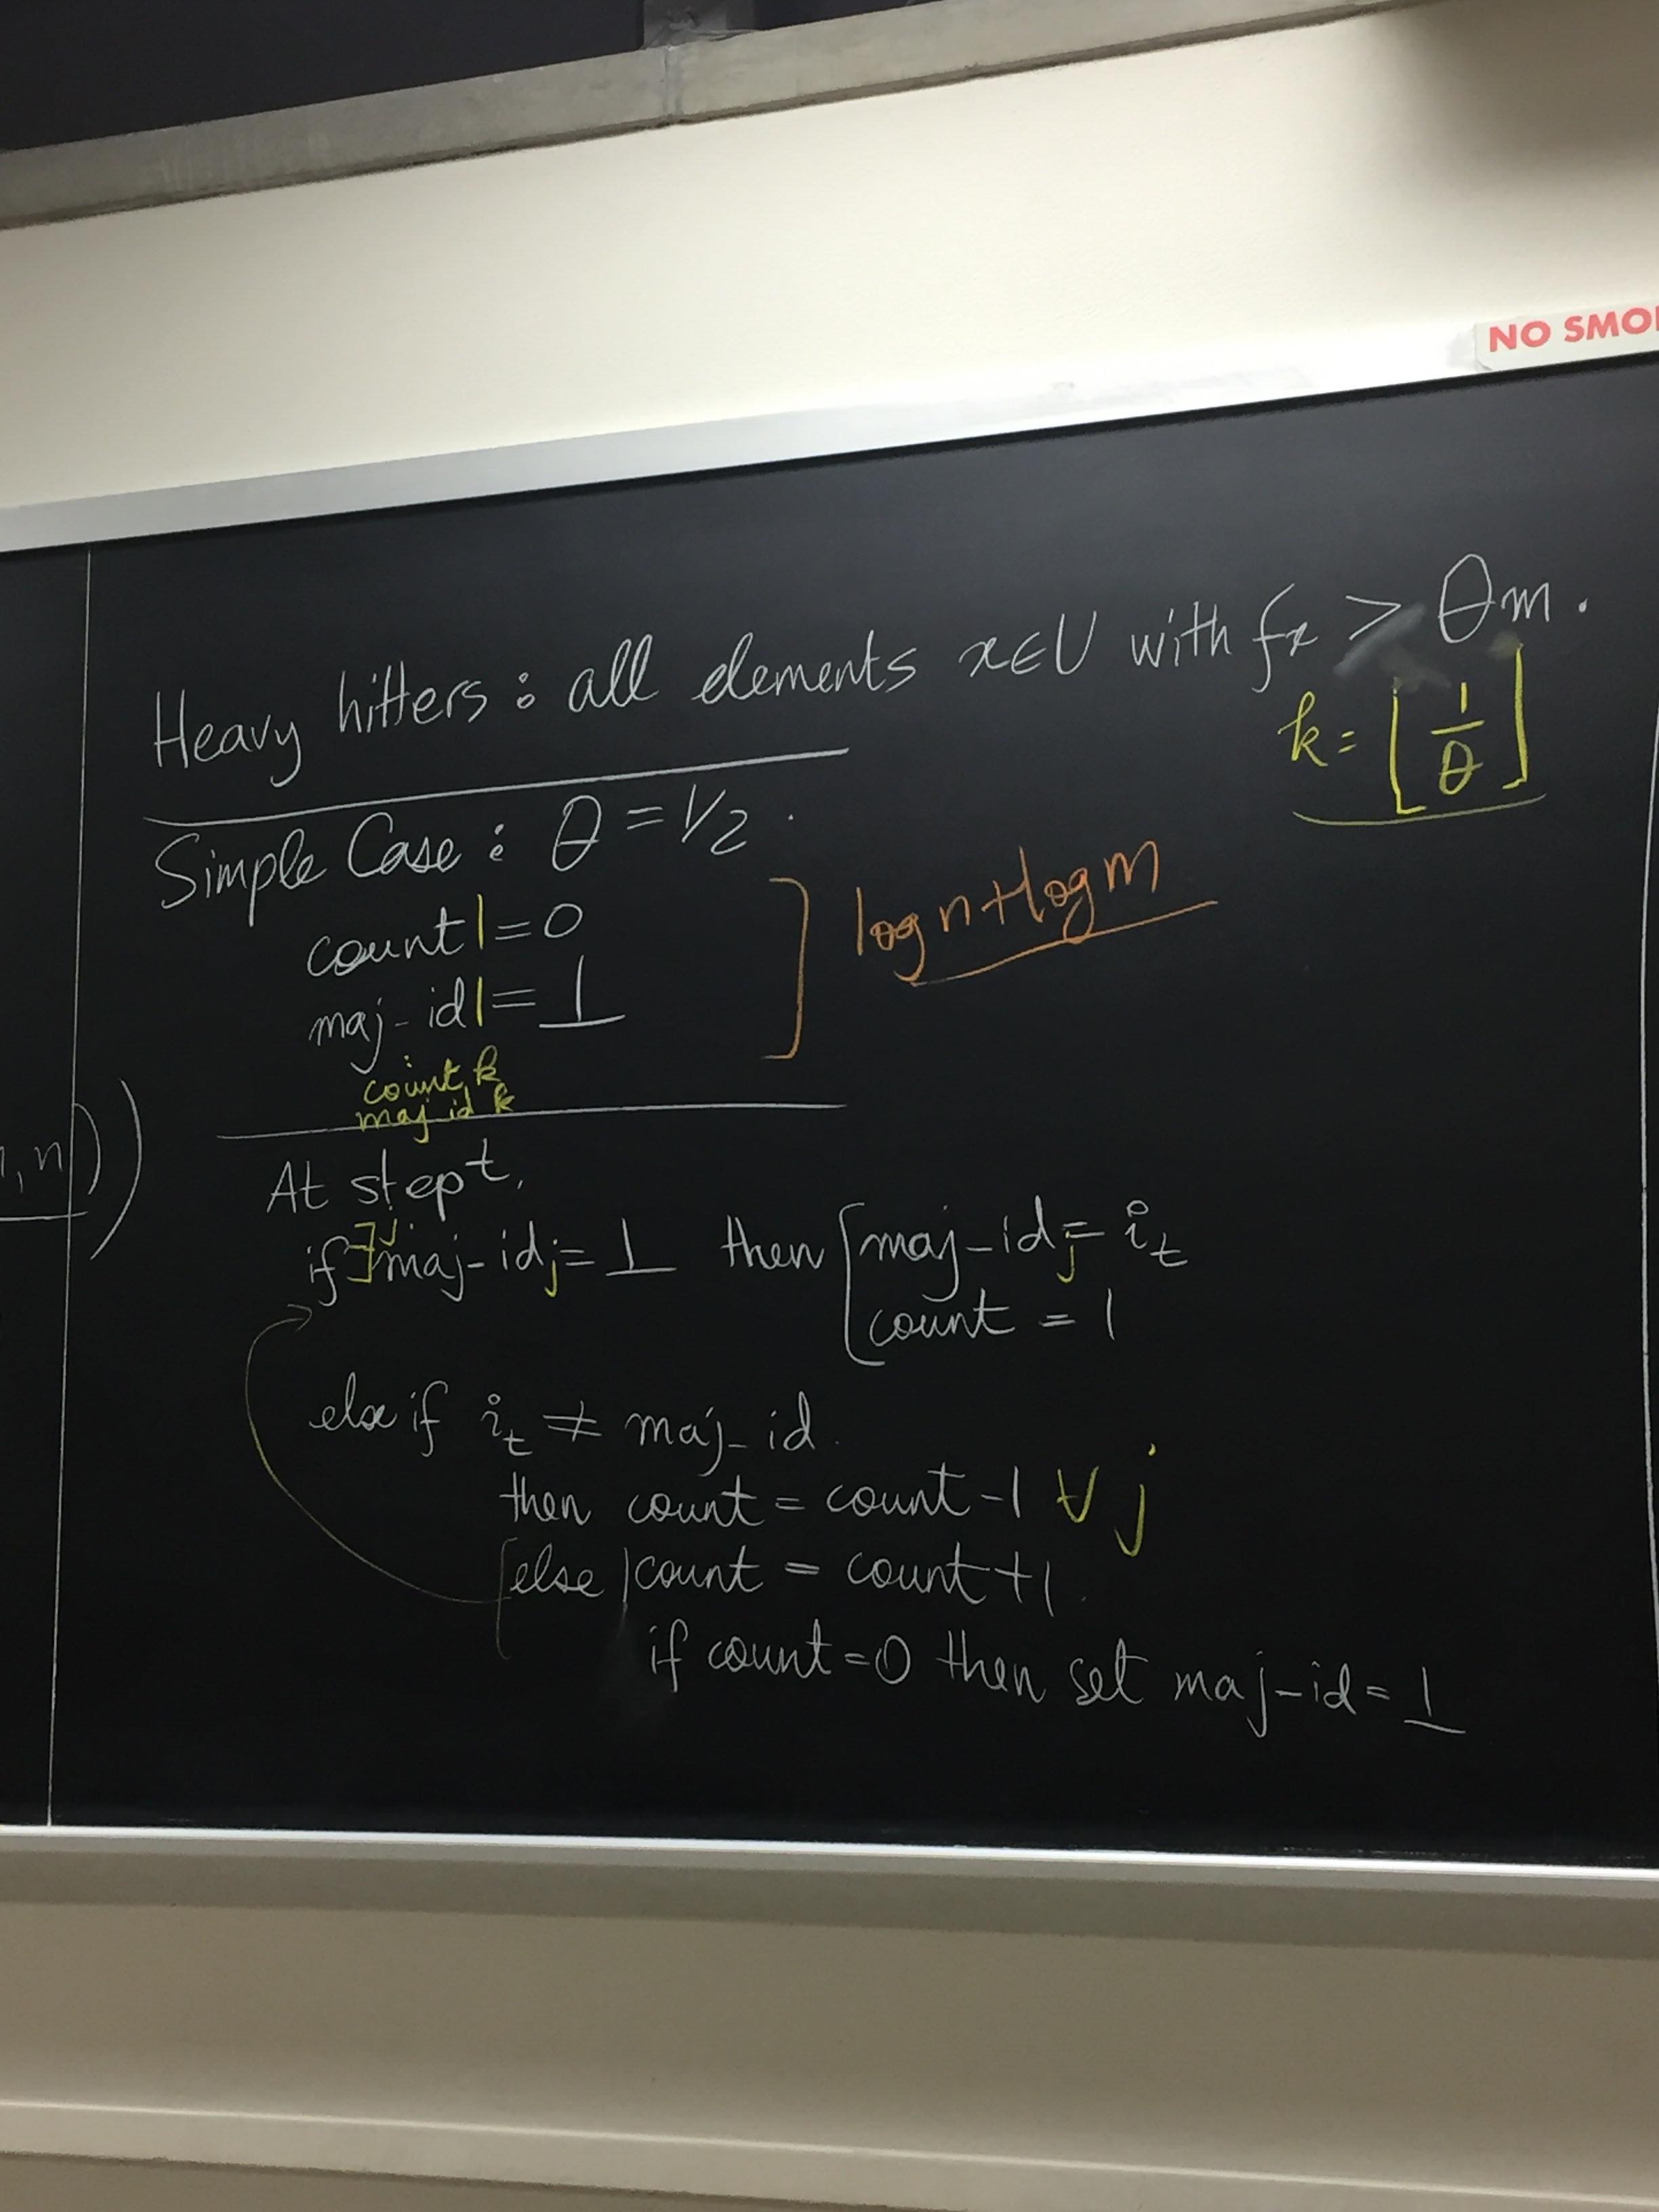 NO SMO
Heavy hitters : all elements x∈U with fx > θm.
k = ⌊1/θ⌋
Simple Case : θ = 1/2.
count1 = 0
maj-id1 = ⊥
log n + log m
count k
maj id k
, n))
At step t,
if ∃j maj-idj = ⊥ then [maj-idj = it
count = 1
else if it ≠ maj-id.
then count = count-1 ∀ j
[else | count = count+1.
if count=0 then set maj-id = ⊥